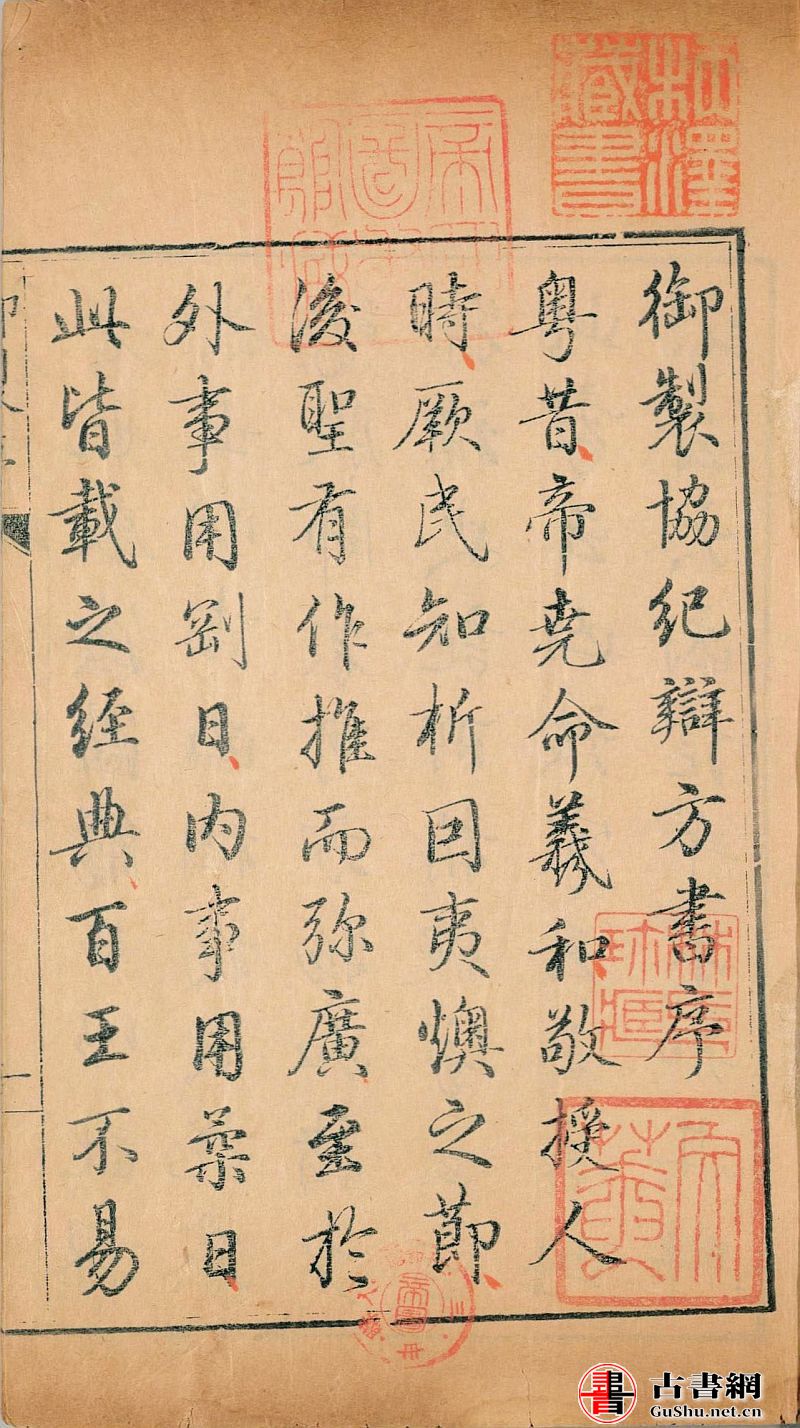 御製協紀辯方書序
粵昔帝堯命羲和敬授人
時厥民知析因夷燠之節
後聖有作推而弥廣至於
外事用剛日内事用柔日
此皆載之經典百王不易
古書網
GuShu.net.cn